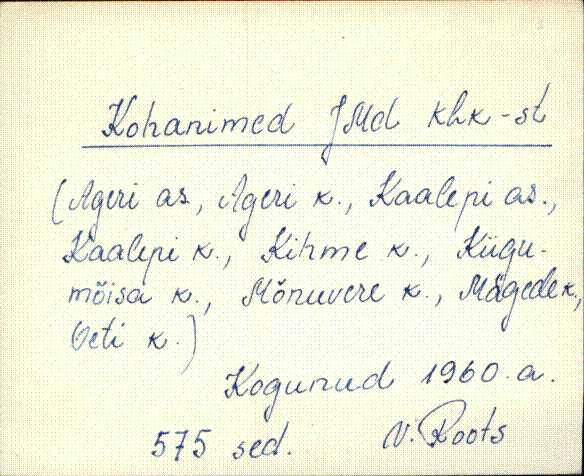 Kohanimed JMd khk-st
(Ageri as., Ageri k., Kaalepi as.,
Kaalepi k., Kihme k., Kiigu-
mõisa k., Mõnuvere k., Mägede k.,
Oeti k.)
Kogunud 1960. a.
575 sed. V. Roots